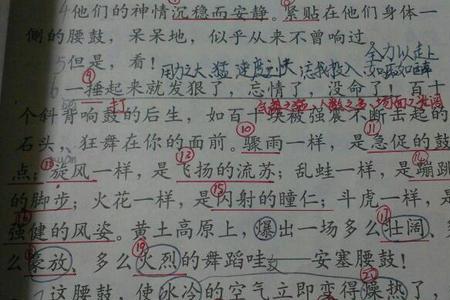 4他们的神情沉稳而安静。紧贴在他们身体一
侧的腰鼓，呆呆地，似乎从来不曾响过。
5但是，看！
全力以赴
用力之大、猛，速度之快
⑨
6一捶起来就发狠了，忘情了，没命了！百十
打
个斜背响鼓的后生，如百十块被强震不断击起的
石头，狂舞在你的面前。骤雨一样，是急促的鼓
⑩
⑪
点；旋风一样，是飞扬的流苏；乱蛙一样，是蹦跳
的脚步；火花一样，是闪射的瞳仁；斗虎一样，是
强健的风姿。黄土高原上，爆出一场多么壮阔、多
么豪放、多么火烈的舞蹈哇——安塞腰鼓！
这腰鼓，使冰冷的空气立即变得燥热了，